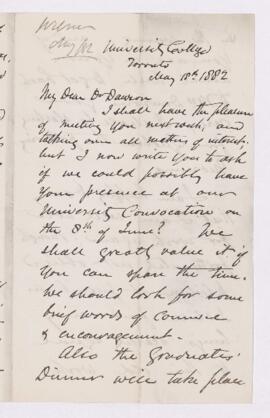 University College
Toronto
May 18th 1882
My Dear Dr Dawson
I shall have the pleasure
of meeting you next week, and
talking over all matters of interest.
but I now write you to ask
if we could possibly have
your presence at our
University Convocation on
the 8th of June? We
shall greatly value it if
you can spare the time.
We should look for some
brief words of
& encouragement.
Also the Graduates'
Dinner will take place